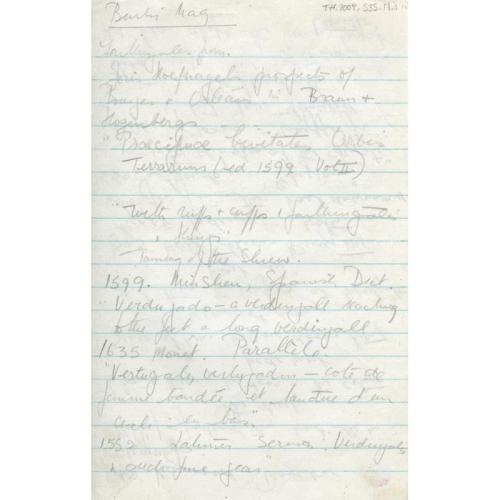 Burl. Mag
TH.2009.535.
Farthingales from
Joris Hoefnagels prospects of
Bourges & Orleans in Braun &
Hogenbergs
"Praecipuae Civitates Orbis
Terrarum (ed 1599 Vol II)
"With ruffs & cuffs & farthingale
Kings"
Taming of the Shrew.
1599. Minshen, Spanish Dict.
"Verdugado – a verdingall
the feet a long verdingall
1635 Monet. Parallèle
"Vertugale, vertugadin – cote de
femme bandée, et d'un
cercle en bas".
1552 Latimer Sermon "Verdingals
gear"